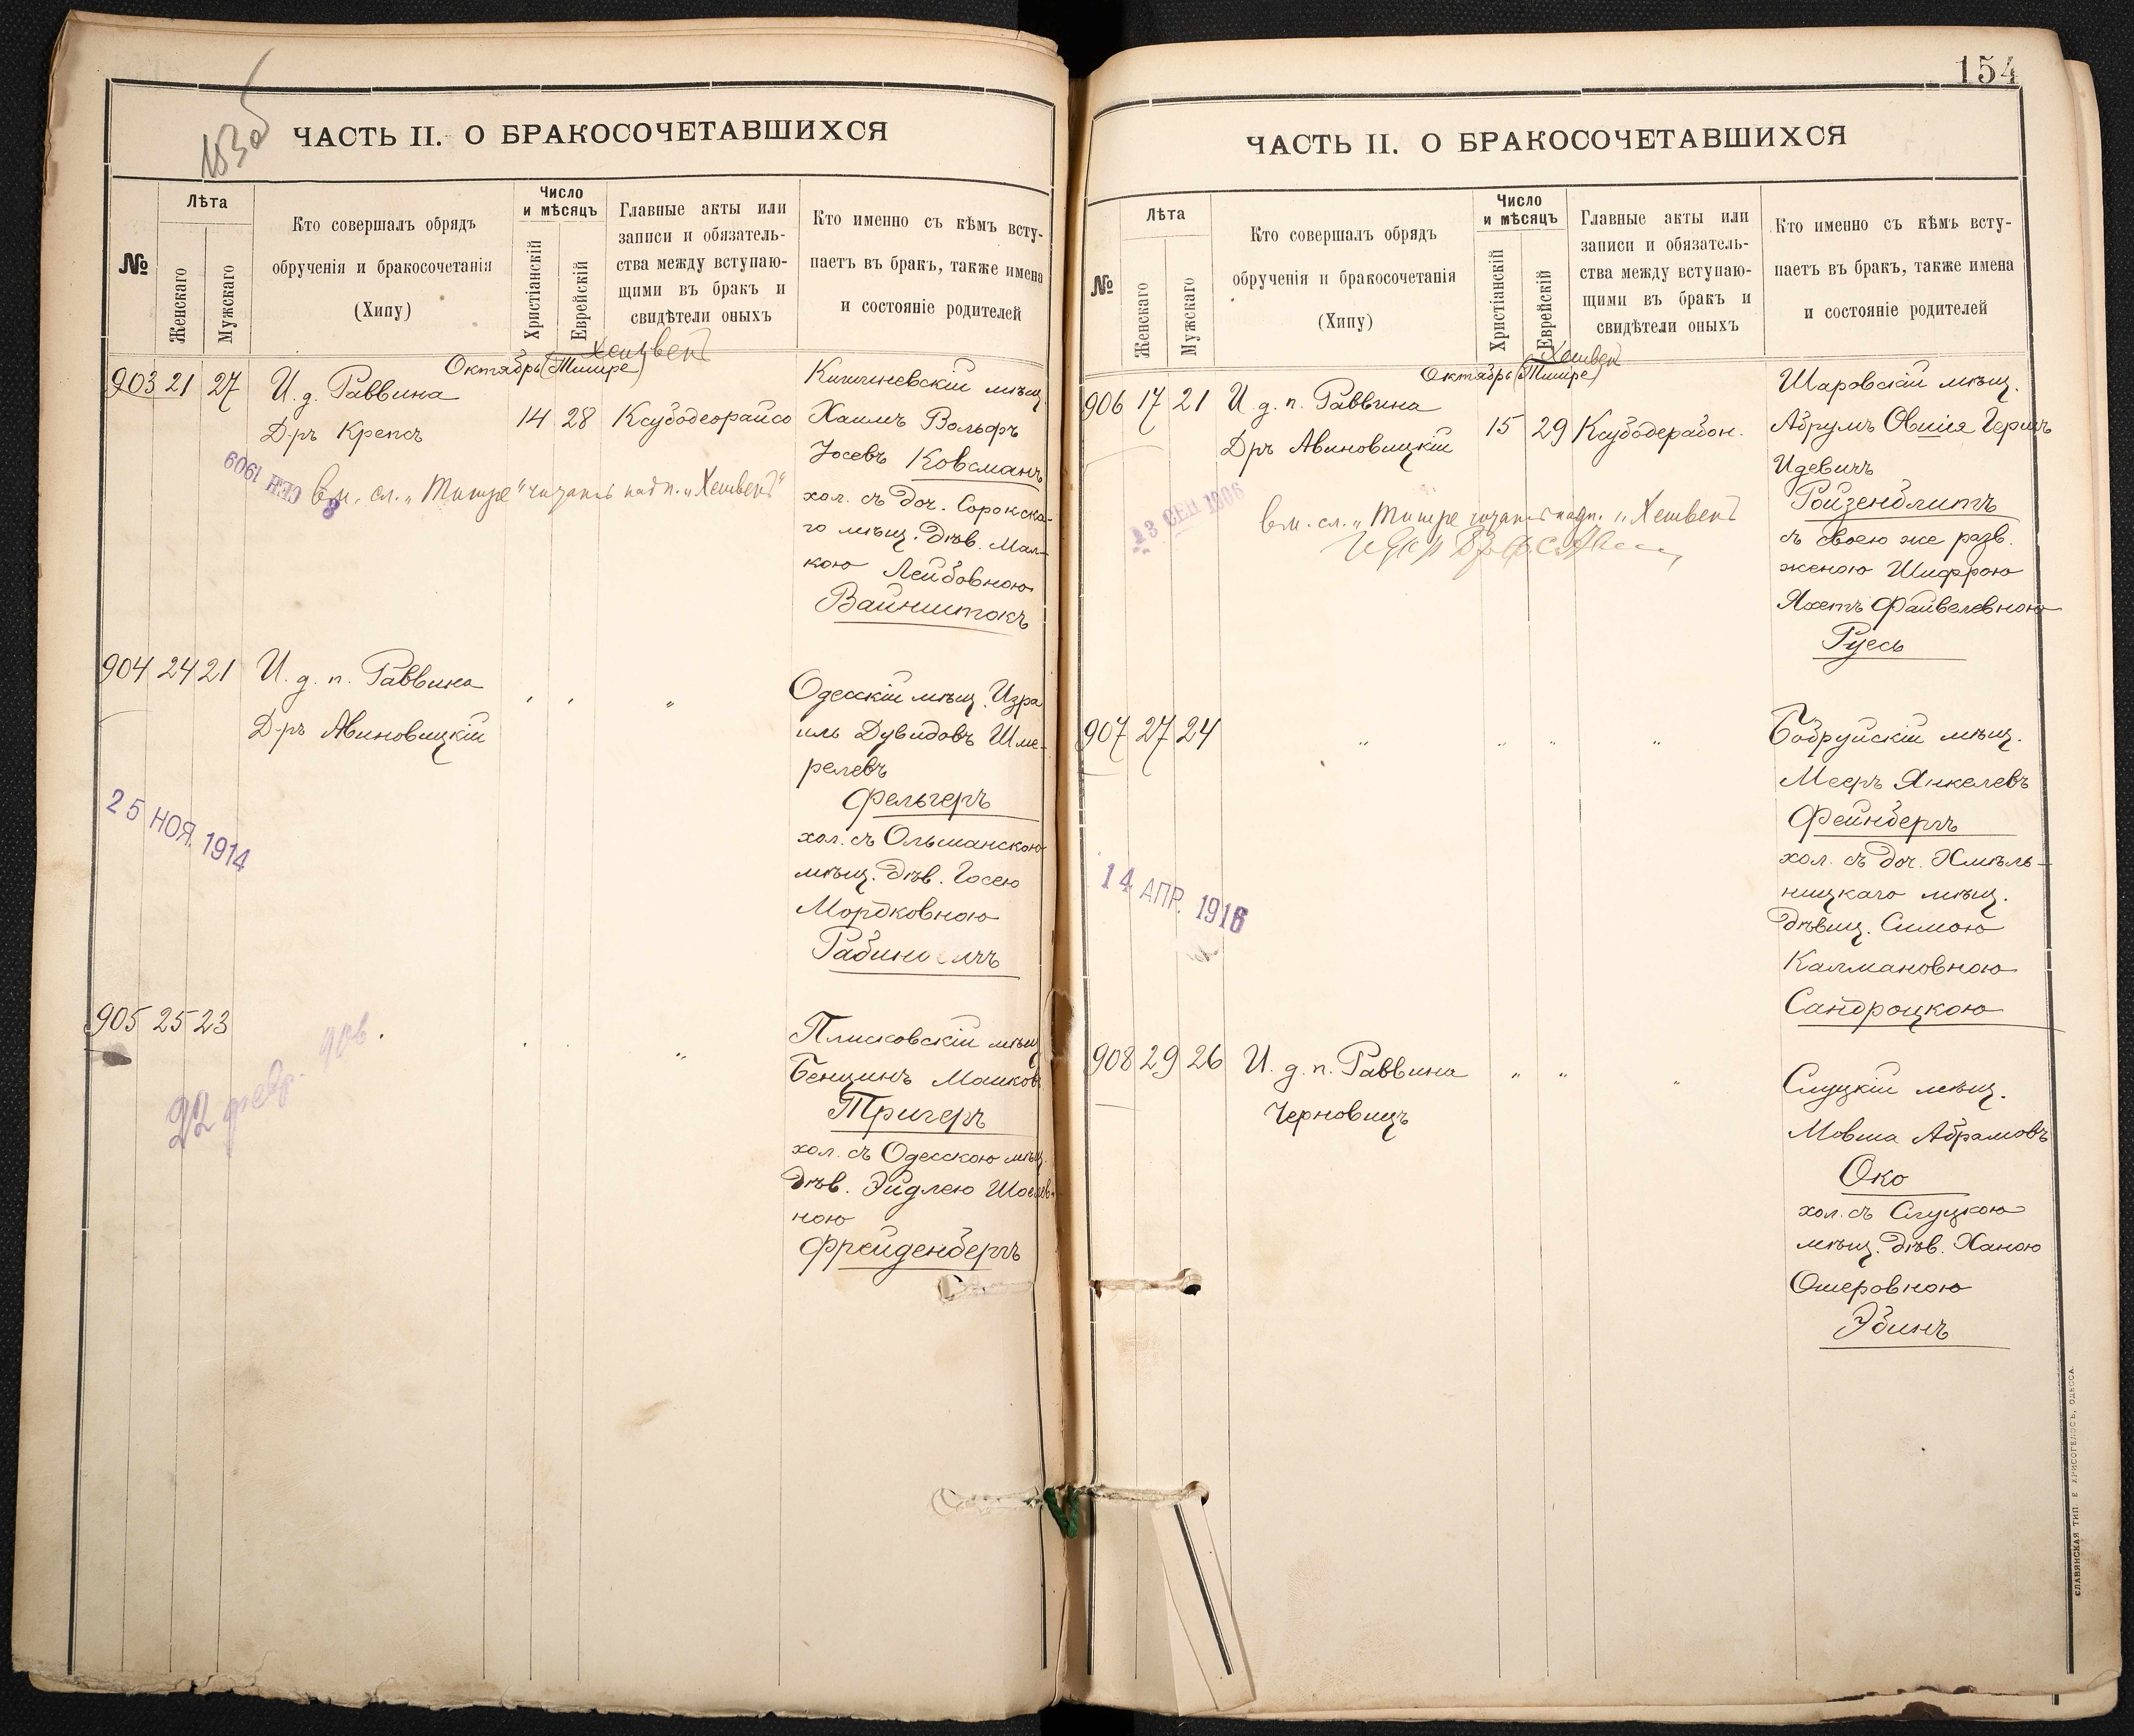 153об
ЧАСТЬ II. О БРАКОСОЧЕТАВШИХСЯ
№
Лѣта
Женскаго
Мужскаго
Кто совершалъ обрядъ
обрученія и бракосочетанія
(Хипу)
Число
и мѣсяцъ
Христіанскій
Еврейскій
Главные акты или
записи и обязатель-
ства между вступаю-
щими въ бракъ и
свидѣтели оныхъ
Кто именно съ кѣмъ всту-
паетъ въ бракъ, также имена
и состояніе родителей
Хешвенъ
Октябрь (Тишре)
903 21 27 И. д. Раввина
Д-ръ Крепсъ
14 28 Ксубодеорайсо
Кишиневскій мѣщ.
Хаимъ Вольфъ
Іосевъ Ковсманъ
хол. съ доч. Сорокска-
го мѣщ. дѣв. Мал-
кою Лейбовною
Вайнштокъ
8 СЕН 1909
вм. сл. „Тишре" читать надп. „Хешвенъ"
904 24 21 И. д. п. Раввина
Д-ръ Авиновицкій
" " "
Одесскій мѣщ. Изра
иль Дувидовъ Шме-
релевъ
Фельгеръ
хол. съ Ольшанскою
мѣщ. дѣв. Госею
Мордковною
25 НОЯ. 1914
905 25 23
22 февр. 906.
Плисковскій мѣщ
Бенцинъ Машковъ
Тригеръ
хол. съ Одесскою мѣщ.
дѣв. Эйдлею Шоелев-
ною
Фрейденбергъ
154
ЧАСТЬ II. О БРАКОСОЧЕТАВШИХСЯ
№
Лѣта
Женскаго
Мужскаго
Кто совершалъ обрядъ
обрученія и бракосочетанія
(Хипу)
Число
и мѣсяцъ
Христіанскій
Еврейскій
Главные акты или
записи и обязатель-
ства между вступаю-
щими въ бракъ и
свидѣтели оныхъ
Кто именно съ кѣмъ всту-
паетъ въ бракъ, также имена
и состояніе родителей
Хешвен
Октябрь (Тишре)
906 17 21 И. д. п. Раввина
Д-ръ Авиновицкій
15 29 Ксубодерабон.
Шаровскій мѣщ.
Абрумъ Овшія Гершъ
Идевичъ
Ройзенблитъ
съ своею же разв.
женою Шифрою
Яхетъ Файвелевною
Русь
13 СЕП 1906
вм. сл. „Тишре читать надп. „Хешвенъ
907 27 24 " " " "
Бобруйскій мѣщ.
Мееръ Янкелевъ
Фейнбергъ
хол. съ доч. Хмѣль-
ницкаго мѣщ.
дѣвиц. Симою
Калмановною
Сандроцкою
14 АПР. 1916
908 29 26 И. д. п. Раввина
Черновицъ
" " "
Слуцкій мѣщ.
Мовша Абрамовъ
Око
хол. съ Слуцкою
мѣщ. дѣв. Ханою
Ошеровною
Эбинъ
СЛАВЯНСКАЯ ТИП. Е ХРИСОГЕЛОСЪ, ОДЕССА.